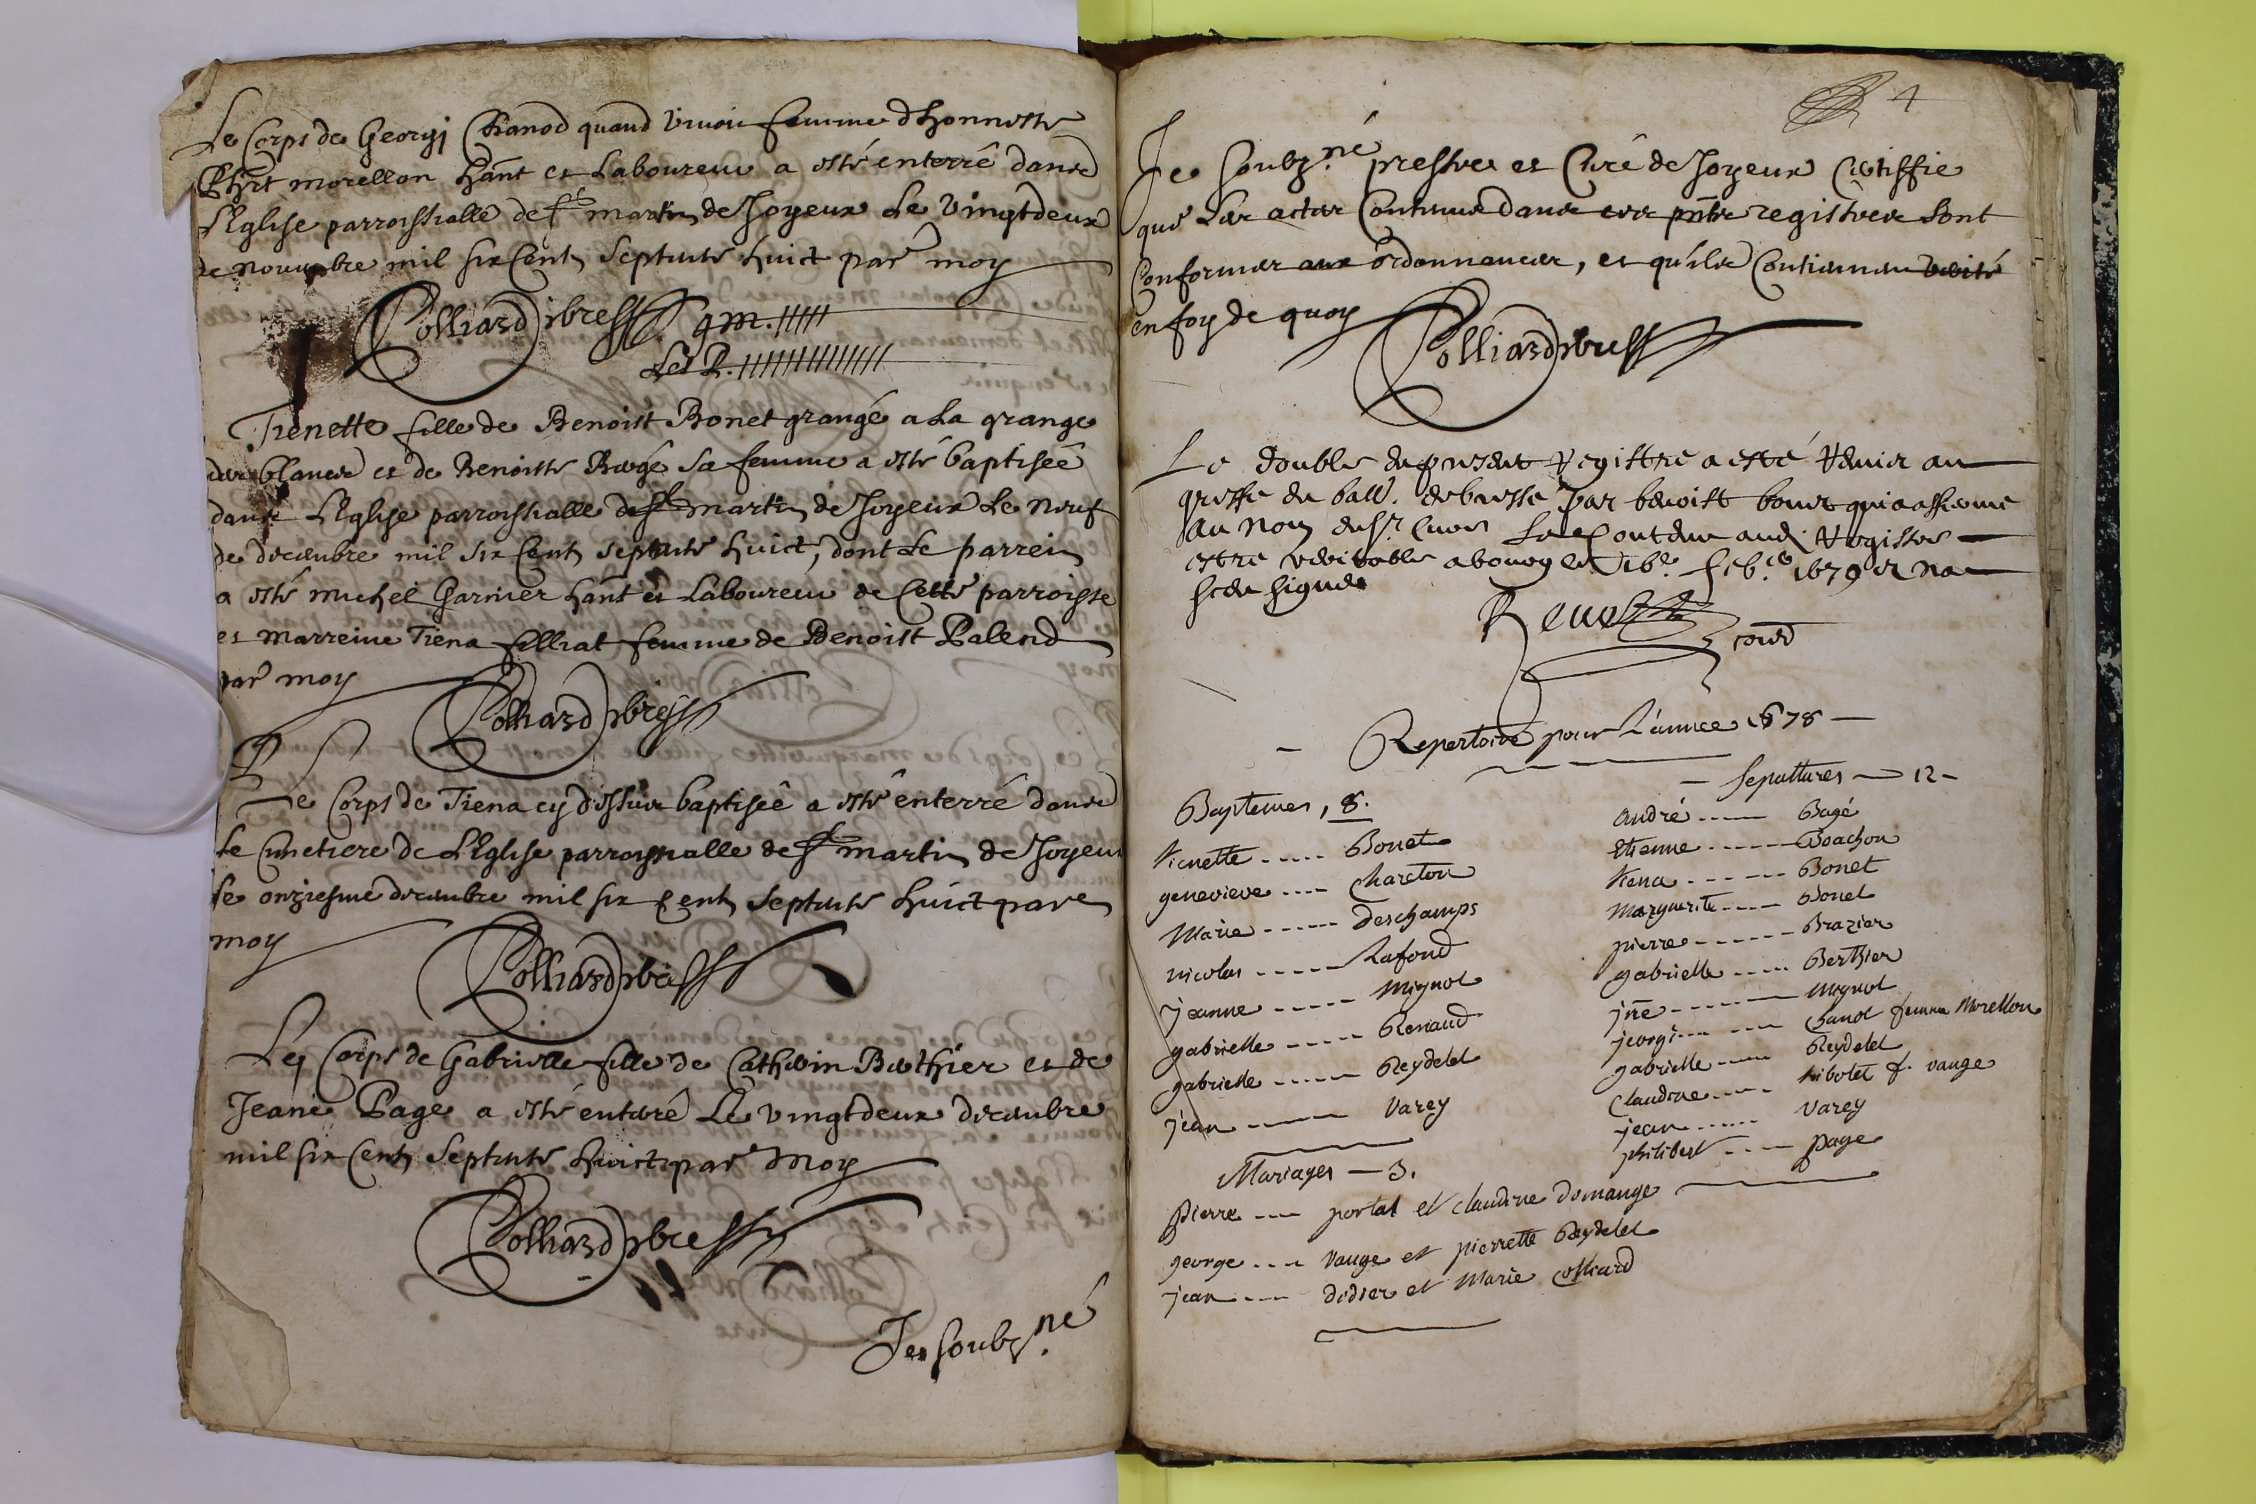 Le Corps de Georgj Chanod quand vivoit femme dhonneste
Phrt morellon hant et Laboureur a esté enterré dans
L'Eglise parroissialle de st martin de Joyeux Le vingtdeux
de novembre mil six Cent septante huict par moy
Colliard
gm. /////
Let P. ///////////////
Tienette fille de Benoist Bonet grangé a La grange
des blancs et de Benoiste Bagé sa femme a esté baptiseé
dans L'Eglise parroissialle de st martin de Joyeux Le neuf
de decembre mil six Cent septante huict, dont Le parrein
a esté michel Garnier hant et Laboureur de Cette parroisse
et marreine Tiena filliat femme de Benoist Palend
par moy
Colliard
Le Corps de Tiena cy dessus baptiseé a esté enterré dans
Le Cimetiere de L'Eglise parroissialle de st martin de Joyeux
Le onziesme decembre mil six Cent septante huict par
moy
Colliard
Le Corps de Gabrielle fille de Catherin Berthier et de
Jeane Page a esté enterré Le vingtdeux decembre
mil six Cent septante huict par moy
Colliard
Je soubz.né
4
Je soubz.né prestre et Curé de Joyeux Certiffie
que Les actes Contenus dans ces pnts registres sont
Conformes aux ordonnances, et qu'ils Contiennent verité
en foy de quoy
Colliard
Le double du present Registre a esté Remis au
greffe du ball. de bresse par benoist bonet qui a affirme
au nom du sr. Curé Le Contenu audt Registre
estre veritable a bourg le 16e febr. 1679 et na
sceu signer
Repertoire pour L'année 1678
Baptemes, 8.
tienette ----- Bonet
genevieve ---- Chareton
Marie ------ Deschamps
nicolas ----- Lafond
jeanne ----- Mignot
gabrielle ----- Renaud
gabrielle ----- Reydelet
jean ------ Varey
Mariages — 3.
pierre --- portat et claudine Domange
george --- Vauge et pierrette Reydelet
jean ---- didier et Marie Colliard
Sepultures — 12
André ---- Bagé
Etienne ------ Boachon
tiena ------ Bonet
Marguerite ---- Bonet
pierre ------ Brazier
gabrielle ---- Berthier
jne ------ Mignot
jeorgi ---- Chanot femme Morellon
gabrielle ---- Reydelet
Claudine ---- ribotet f. vauge
jean ----- Varey
philibert ---- page